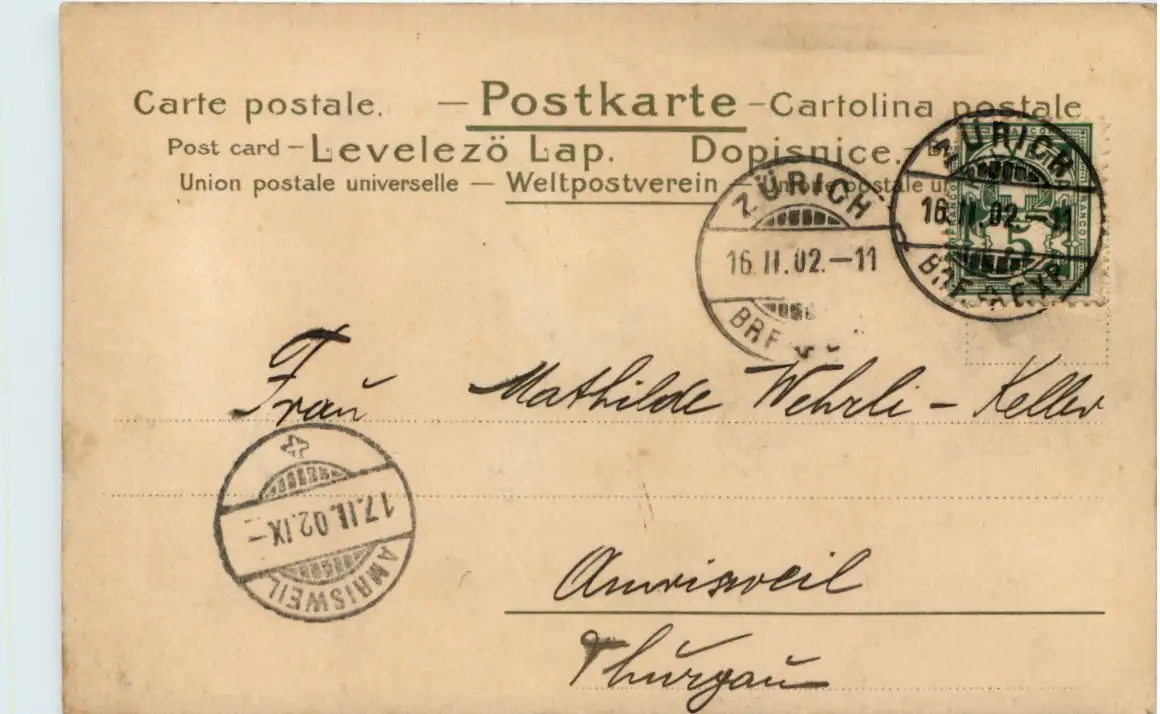 Carte postale. — Postkarte – Cartolina postale
Post card – Levelező Lap. Dopisnice. –
Union postale universelle — Weltpostverein – Unione postale
ZÜRICH
16.II.02.–11
BRF.
ZÜRICH
16.II.02.–11
BRF. EXP.
FRANCO
5
Frau Mathilde Wehrli – Keller
17.II.02.IX–
AMRISWEIL
Amrisweil
Thurgau